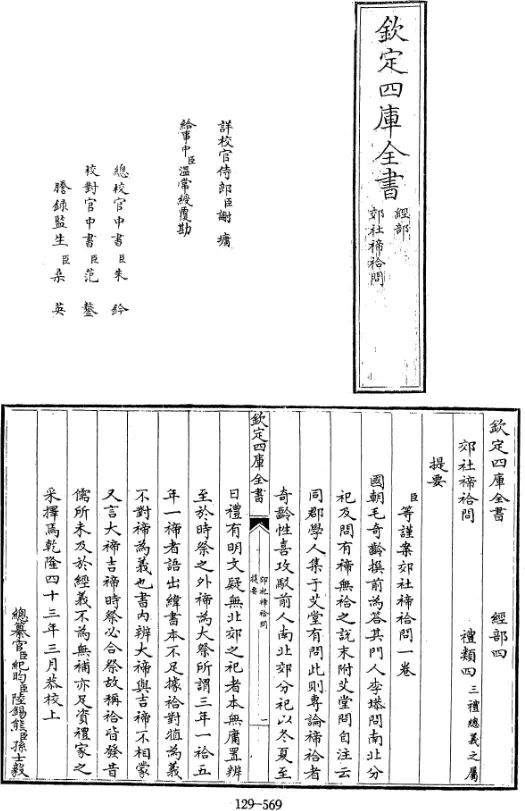 欽定四庫全書
經部
郊社禘祫問
詳校官侍郎臣謝墉
給事中臣溫常綬覆勘
總校官中書臣朱鈐
校對官中書臣范鏊
謄錄監生臣桑英
欽定四庫全書 經部四
郊社禘祫問 禮類四 三禮總義之屬
提要
臣等謹案郊社禘祫問一卷
國朝毛奇齡撰前為答其門人李塨問南北分
祀及問有禘無祫之說末附艾堂問自注云
同郡學人集于艾堂有問此則專論禘祫者
奇齡性喜攻駁前人南北郊分祀以冬夏至
欽定四庫全書
郊社禘祫問
提要
一
日禮有明文疑無北郊之祀者本無庸置辨
至於時祭之外禘為大祭所謂三年一祫五
年一禘者語出緯書本不足據祫對犆為義
不對禘為義也書內辨大禘與吉禘不相蒙
又言大禘吉禘時祭必合祭故稱祫皆發昔
儒所未及於經義不為無補亦足資禮家之
采擇焉乾隆四十三年三月恭校上
總纂官臣紀昀臣陸錫熊臣孫士毅
129-569